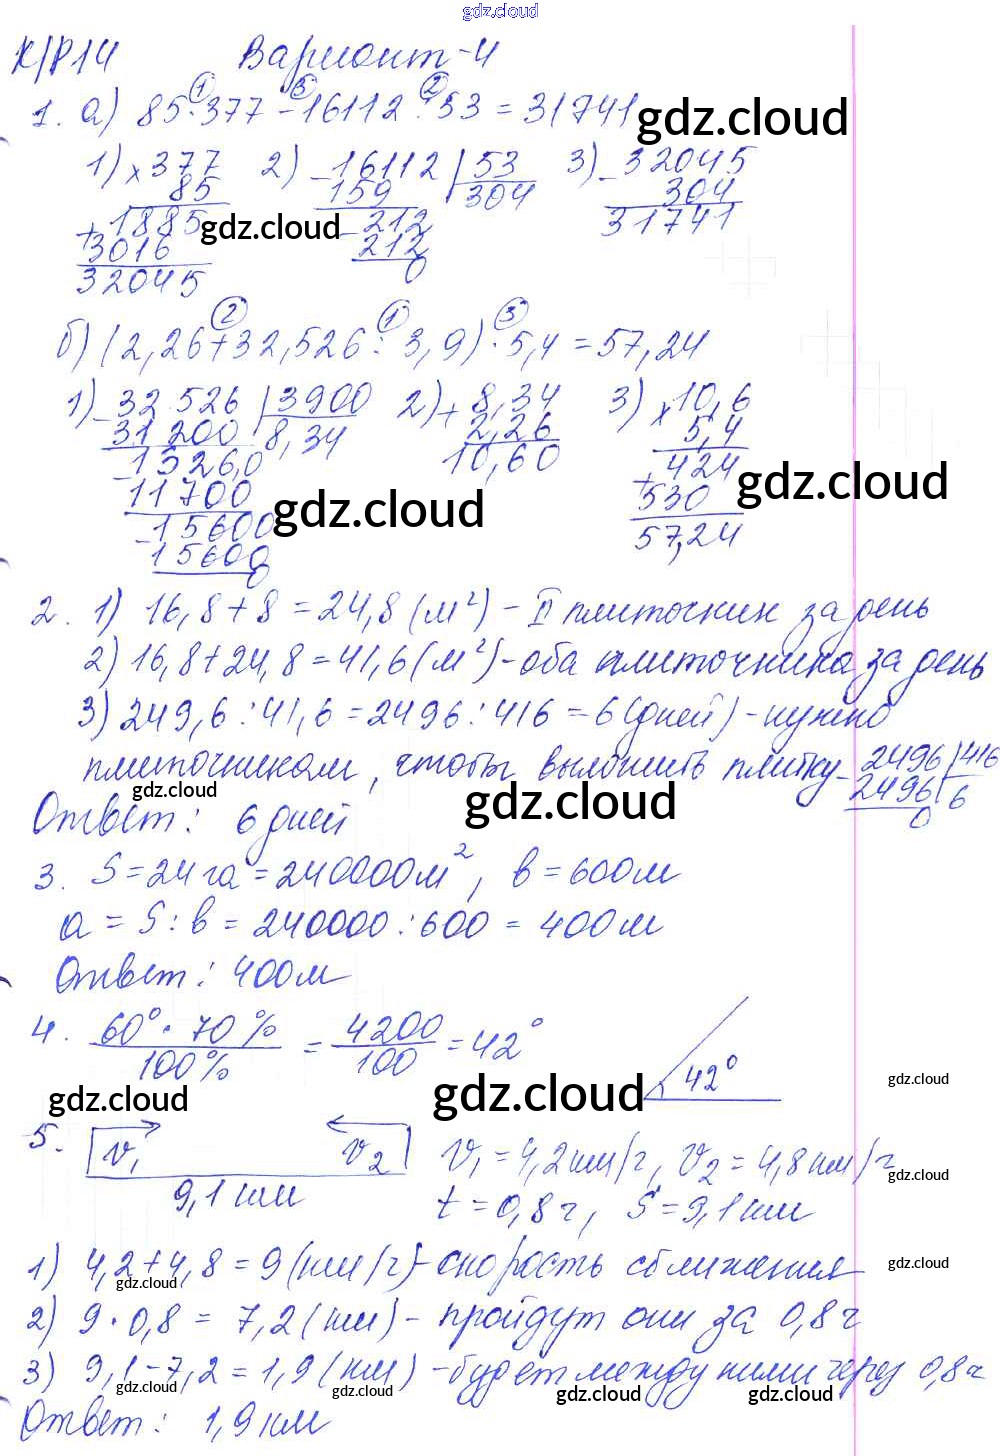 gdz.cloud
К/Р14 Вариант-4
① ③ ②
1. а) 85·377 - 16112 : 53 = 31741
gdz.cloud
1) × 377 2) - 16112 | 53 3) - 32045
85 159 304 304
+ 1885 - 212 31741
gdz.cloud
3016 212
32045 0
② ① ③
б) (2,26+32,526 : 3,9) · 5,4 = 57,24
1) - 32 526 | 3900 2) + 8,34 3) × 10,6
31 200 8,34 2,26 5,4
- 1326,0 10,60 + 424
11700 530
gdz.cloud gdz.cloud
- 15600 57,24
15600
0
2. 1) 16,8+8 = 24,8 (м²) - II плиточник за день
2) 16,8+24,8 = 41,6 (м²) - оба плиточника за день
3) 249,6 : 41,6 = 2496 : 416 = 6 (дней) - нужно
плиточникам, чтобы выложить плитку - 2496 | 416
gdz.cloud gdz.cloud
2496 6
0
Ответ: 6 дней
3. S = 24 га = 240000 м², в = 600 м
а = S : в = 240000 : 600 = 400 м
Ответ: 400 м
4. 60° · 70 % / 100% = 4200 / 100 = 42° 42°
gdz.cloud gdz.cloud gdz.cloud
5. v₁ v₂ v₁ = 4,2 км/ч, v₂ = 4,8 км/ч
gdz.cloud
9,1 км t = 0,8 ч, S = 9,1 км
1) 4,2+4,8 = 9 (км/ч) - скорость сближения
gdz.cloud gdz.cloud
2) 9 · 0,8 = 7,2 (км) - пройдут они за 0,8 ч
3) 9,1 - 7,2 = 1,9 (км) - будет между ними через 0,8 ч
gdz.cloud gdz.cloud gdz.cloud gdz.cloud
Ответ: 1,9 км